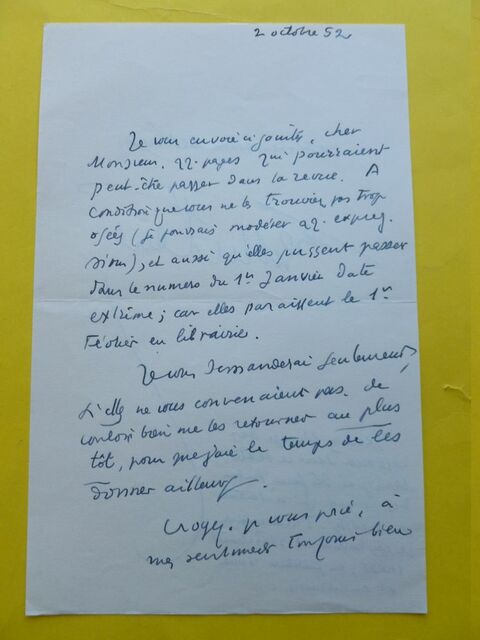 2 octobre 52
Je vous envoie ci-joints, cher
Monsieur, qq. pages qui pourraient
peut-être passer dans la revue. A
condition que vous ne les trouviez pas trop
osées (je pourrais modérer qq. expres-
sions), et aussi qu'elles pussent passer
dans le numero du 1er Janvier date
extrême ; car elles paraissent le 1er
Février en librairie.
Je vous demanderai seulement,
si elles ne vous convenaient pas, de
vouloir bien me les retourner au plus
tôt, pour que j'aie le temps de les
donner ailleurs.
Croyez, je vous prie, à
mes sentiments toujours bien